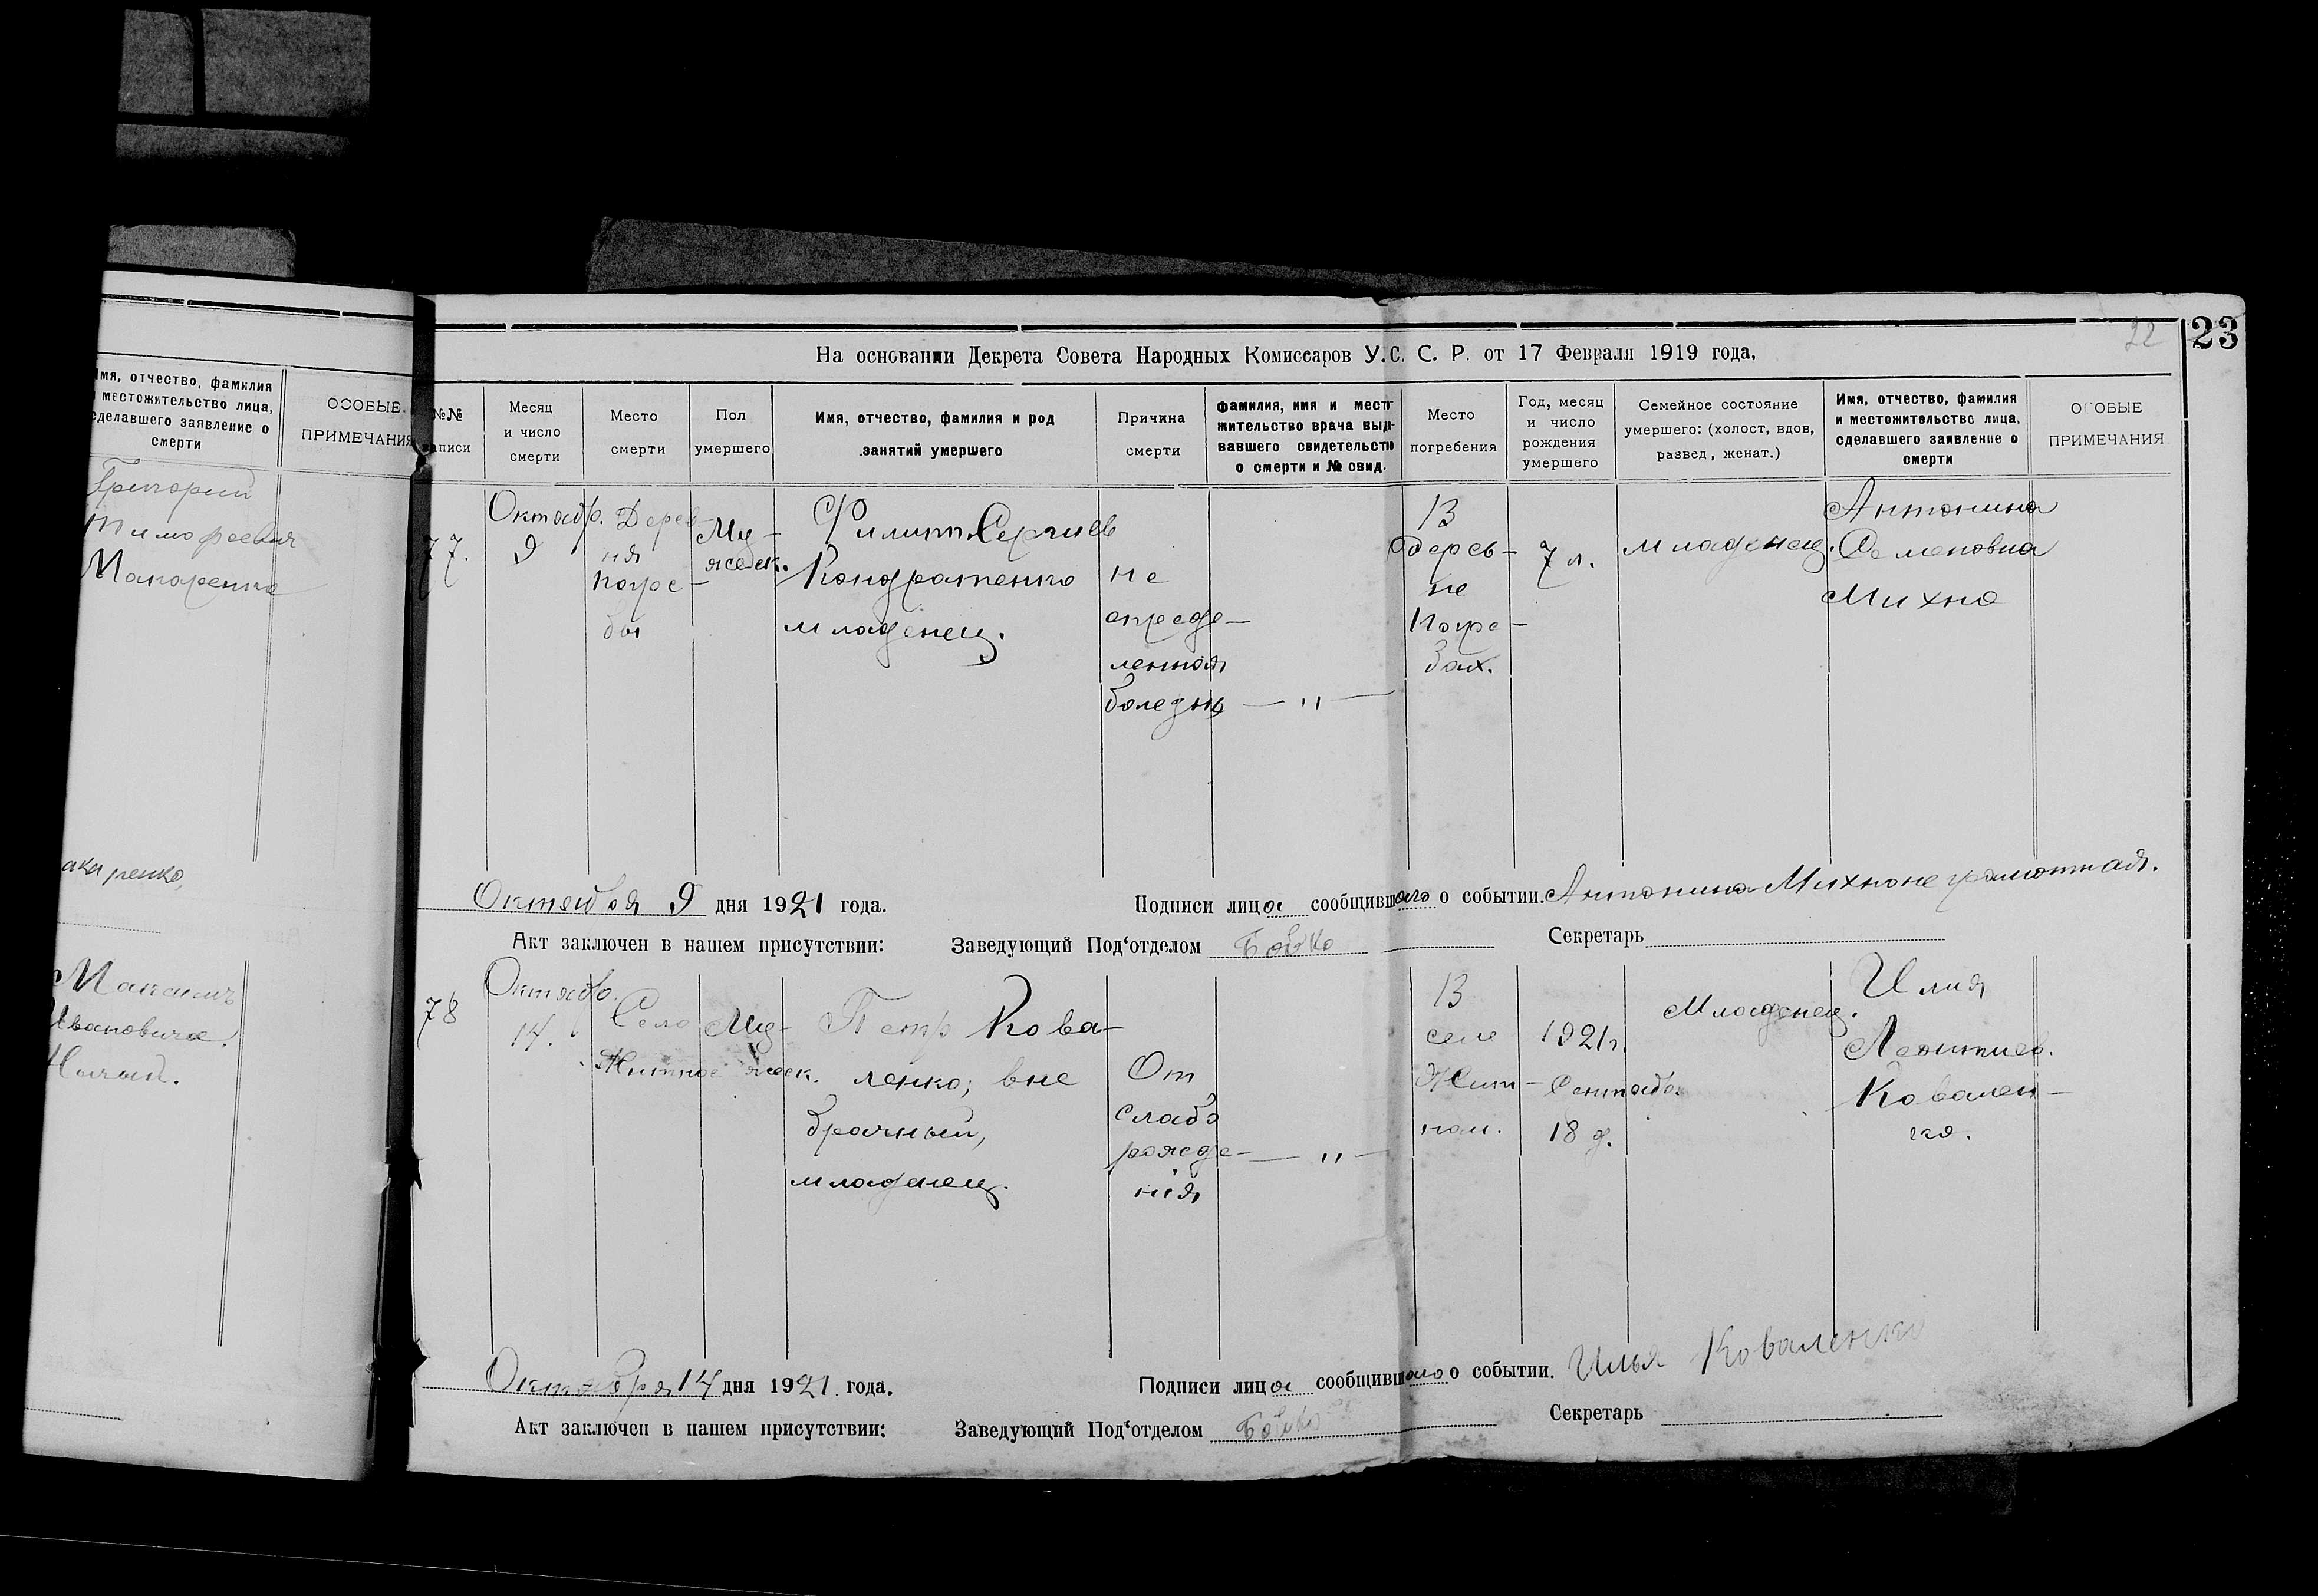 Имя, отчество, фамилия
и местожительство лица,
сделавшего заявление о
смерти
ОСОБЫЕ
ПРИМЕЧАНИЯ
Григорий
Тимофеевич
Макаренко
акаренко,
Иванович
22
23
На основании Декрета Совета Народных Комиссаров У.С.С.Р. от 17 Февраля 1919 года.
№№
записи
Месяц
и число
смерти
Место
смерти
Пол
умершего
Имя, отчество, фамилия и род
занятий умершего
Причина
смерти
фамилия, имя и место-
жительство врача выда-
вавшего свидетельство
о смерти и № свид.
Место
погребения
Год, месяц
и число
рождения
умершего
Семейное состояние
умершего: (холост, вдов,
развед, женат.)
Имя, отчество, фамилия
и местожительство лица,
сделавшего заявление о
смерти
ОСОБЫЕ
ПРИМЕЧАНИЯ
77.
Октябр.
9
Дерев-
ня
Погре-
бы
Му-
жеск.
Филипп Сергиев
Кондратенко
младенец.
не
опреде-
ленная
болезнь
— " —
В
дерев-
не
Погре-
бах.
7 л.
младенец.
Антонина
Семеновна
Михно
Октября 9 дня 1921 года.
Подписи лица сообщившаго о событии. Антонина Михно неграмотная.
Акт заключен в нашем присутствии:
Заведующий Под‘отделом Бойко
Секретарь
78
Октябр.
14.
Село
Житное
Му-
жеск.
Петр Кова-
ленко; вне
брачный,
младенец.
От
слабо
рожде-
нія
— " —
В
селе
Жит-
ном.
1921 г.
Сентябр.
18 д.
Младенец.
Илия
Леонтиев.
Ковален-
ко.
Октября 14 дня 1921 года.
Подписи лица сообщившаго о событии. Илья Коваленко
Акт заключен в нашем присутствии:
Заведующий Под‘отделом Бойко
Секретарь